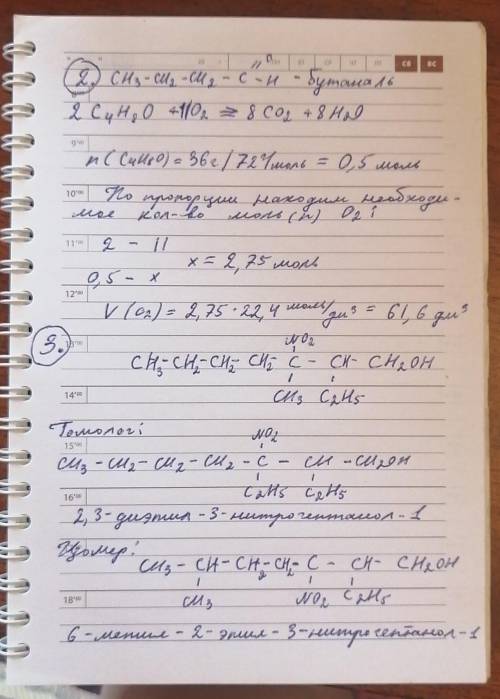 2. CH3-CH2-CH2-C-H - Бутаналь
"O
СБ ВС
2 C4H8O + 11O2 ⇒ 8CO2 + 8H2O
9:00
n(C4H8O) = 36г / 72г/моль = 0,5 моль
10:00 По пропорции находим необходи-
мое кол-во моль (n) O2:
11:00 2 - 11
x = 2,75 моль
0,5 - x
12:00
V(O2) = 2,75 · 22,4 моль/дм3 = 61,6 дм3
3. 13:00 NO2
CH3-CH2-CH2-CH2-C-CH-CH2OH
14:00 CH3 C2H5
Гомолог:
15:00 NO2
CH3-CH2-CH2-CH2-C-CH-CH2OH
16:00 C2H5 C2H5
2,3-диэтил-3-нитрогептанол-1
Изомер:
CH3-CH-CH2-CH2-C-CH-CH2OH
18:00 CH3 NO2 C2H5
6-метил-2-этил-3-нитрогептанол-1